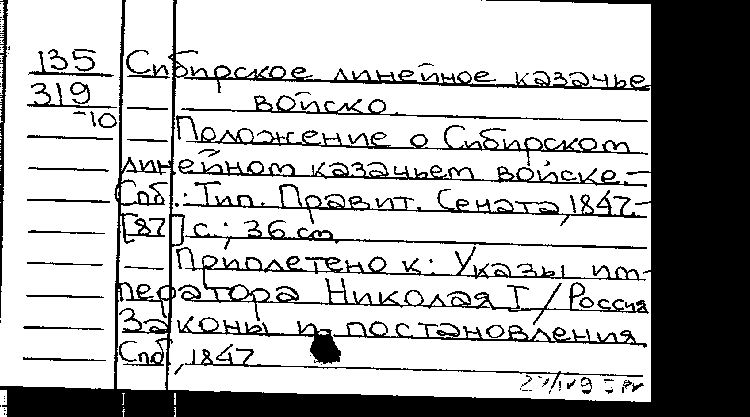 135 Сибирское линейное казачье
319 войско.
-10 Положение о Сибирском
линейном казачьем войске.-
Спб.: Тип. Правит. Сената, 1847.-
[87] с.; 36 см.
Приплетено к: Указы им-
ператора Николая I / Россия
Законы и постановления.
Спб, 1847